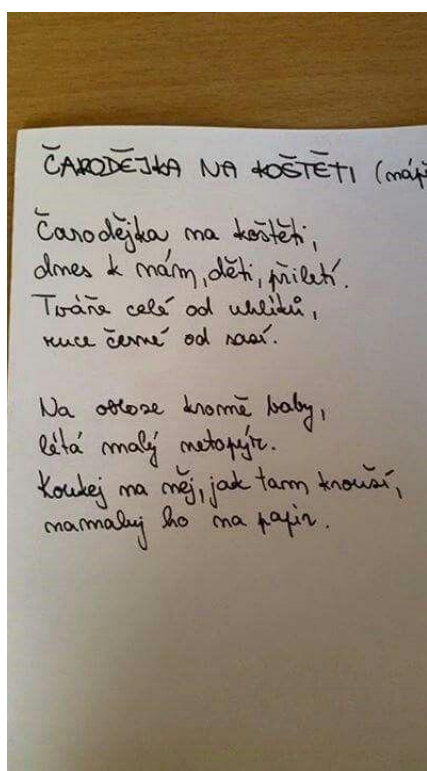 ČARODĚJKA NA KOŠTĚTI
Čarodějka na koštěti,
dnes k nám, děti, přiletí.
Tváře celé od uhlíků,
ruce černé od sazí.
Na obloze kromě baby,
létá malý netopýr.
Koukej na něj, jak tam krouží,
namaluj ho na papír.